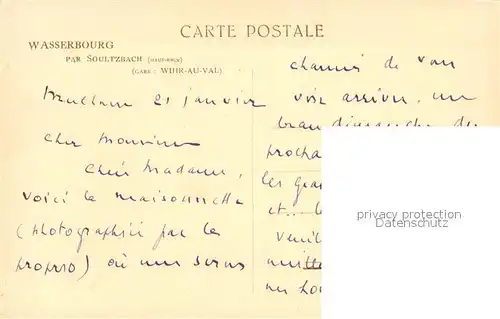 CARTE POSTALE
WASSERBOURG
PAR SOULTZBACH (HAUT-RHIN)
(GARE: WIHR-AU-VAL)
21 janvier
cher Monsieur
chère Madame,
voici la maisonnette
(photographiée par le
proprio) où nous serons
charmés de vous
voir arriver, un
beau dimanche de
procha
les gra
et.. le
privacy protection
Datenschutz